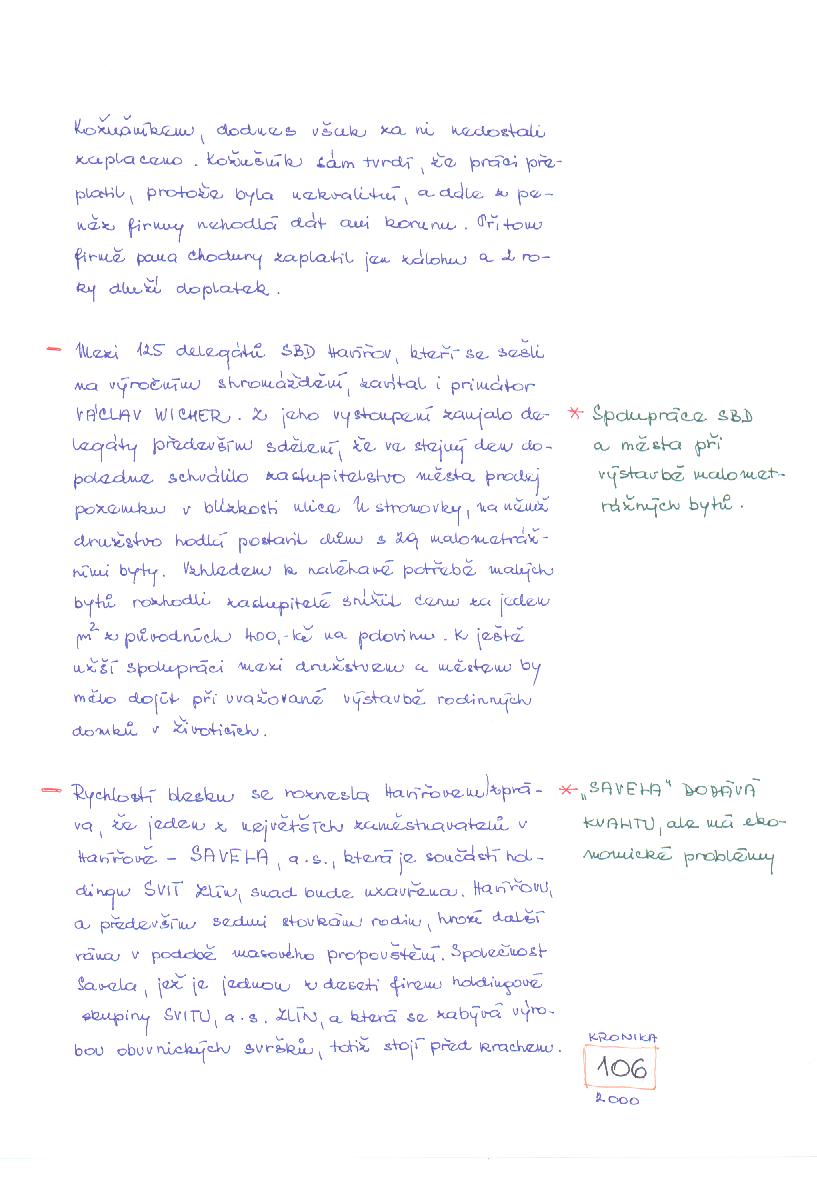 Kožušníkem, dodnes však za ni nedostali
zaplaceno. Kožušník sám tvrdí, že práci pře-
platil, protože byla nekvalitní, a dále z pe-
něz firmy nehodlá dát ani korunu. Přitom
firmě pana Chodury zaplatil jen zálohu a 2 ro-
ky dluží doplatek.
– Mezi 125 delegátů SBD Havířov, kteří se sešli
na výročním shromáždění, zavítal i primátor
VÁCLAV WICHER. Z jeho vystoupení zaujalo de-
legáty především sdělení, že ve stejný den do-
poledne schválilo zastupitelstvo města prodej
pozemku v blízkosti ulice U stromovky, na němž
družstvo hodlá postavit dům s 29 malometráž-
ními byty. Vzhledem k naléhavé potřebě malých
bytů rozhodli zastupitelé snížit cenu za jeden
m² z původních 400,-kč na polovinu. K ještě
užší spolupráci mezi družstvem a městem by
mělo dojít při uvažované výstavbě rodinných
domků v Životicích.
* Spolupráce SBD
a města při
výstavbě malomet-
rážných bytů.
– Rychlostí blesku se roznesla Havířovem zprá-
va, že jeden z největších zaměstnavatelů v
Havířově – SAVELA, a.s., která je součástí hol-
dingu SVIT ZLÍN, snad bude uzavřena. Havířovu,
a především sedmi stovkám rodin, hrozí další
rána v podobě masového propouštění. Společnost
Savela, jež je jednou z deseti firem holdingové
skupiny SVITU, a.s. ZLÍN, a která se zabývá výro-
bou obuvnických svršků, totiž stojí před krachem.
* „SAVELA" DODÁVÁ
KVALITU, ale má eko-
nomické problémy
KRONIKA
106
2000